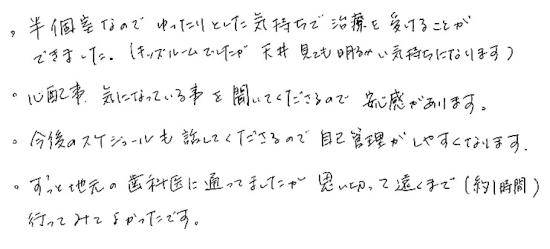 。半個室なので ゆったりとした気持ちで治療を受けることが
できました。(キッズルームでしたが 天井見ても明るい気持ちになります)
。心配事、気になっている事を聞いてくださるので 安心感があります。
。今後のスケジュールも話してくださるので自己管理がしやすくなります.
。ずっと地元の歯科医に通ってましたが 思い切って遠くまで(約1時間)
行ってみてよかったです。